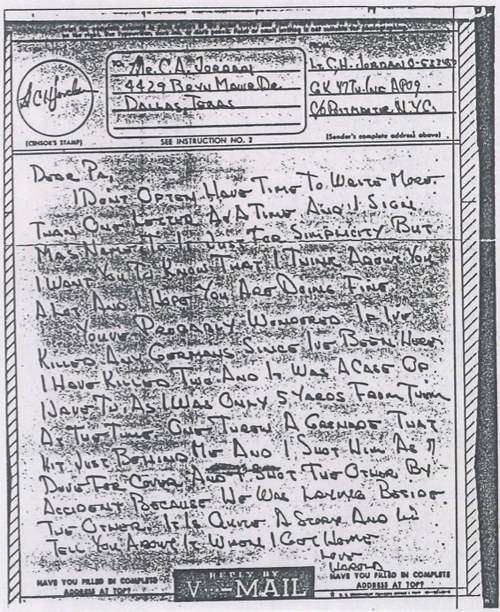 TO: Mr. C. A. Jordan
4429 Bryn Mawr Dr.
Dallas, Texas
FROM
Lt. C. H. Jordan
Co K 47th Inf APO 9
C/o Postmaster, N.Y.C.
(CENSOR'S STAMP)
SEE INSTRUCTION NO. 2
(Sender's complete address above)
Dear Pa,
I Don't Often Have Time To Write More
Than One Letter At A Time And I Sign
Mas Name To It Just For Simplicity But
I Want You To Know That I Think About You
A Lot And I Hope You Are Doing Fine
You've Probably Wondered If I've
Killed Any Germans Since I've Been Here
I Have Killed Two And It Was A Case Of
Have To, As I Was Only 5 Yards From Them
At The Time. One Threw A Grenade That
Hit Just Behind Me And I Shot Him As I
Dove For Cover And I Shot The Other By
Accident Because He Was Laying Beside
The Other. It Is Quite A Story And I'll
Tell You About It When I Get Home
Love
Harold
HAVE YOU FILLED IN COMPLETE
ADDRESS AT TOP?
REPLY BY
V···—MAIL
HAVE YOU FILLED IN COMPLETE
ADDRESS AT TOP?